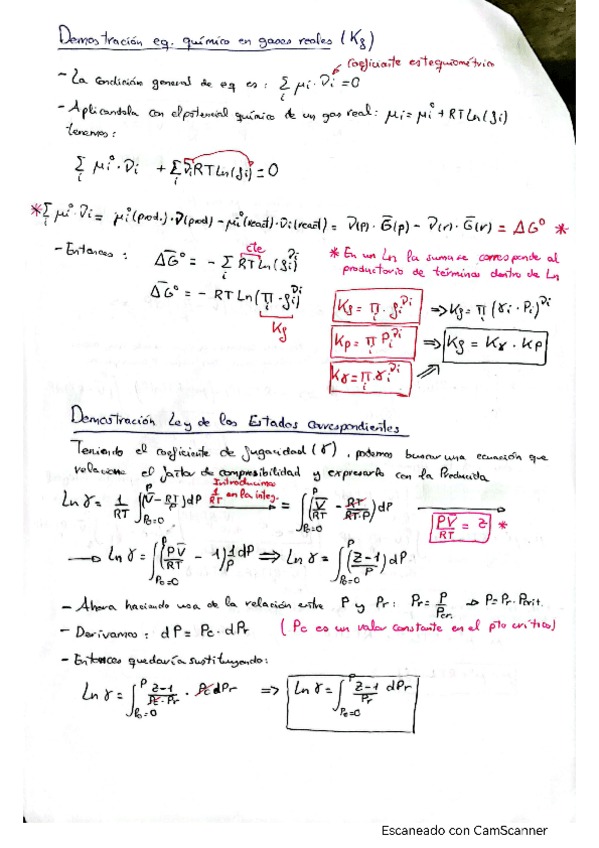 Demostración eq. químico en gases reales (Kf)
coeficiente estequiométrico
- La condición general de eq es: Σi μi · νi = 0
- Aplicandola con el potencial químico de un gas real: μi = μi° + RT Ln(fi)
tenemos:
Σi μi° · νi + Σi νi RT Ln(fi) = 0
* Σi μi° · νi = μi°(prod.) · ν(prod) - μi°(react) · νi(react) = ν(p) · G̅(p) - ν(r) · G̅(r) = ΔG° *
- Entonces : ΔG̅° = - Σi RT Ln(fi)^νi
cte
* En un Ln la suma se corresponde al
productorio de términos dentro de Ln
ΔG̅° = - RT Ln(πi · fi^νi)
Kf
Kf = πi · fi^νi ⇒ Kf = πi (γi · Pi)^νi
Kp = πi Pi^νi ⇒ Kf = Kγ · Kp
Kγ = πi · γi^νi
Demostración Ley de los Estados correspondientes
Teniendo el coeficiente de fugacidad (γ), podemos buscar una ecuación que
relacione el factor de compresibilidad y expresarlo con la Preducida
Ln γ = 1/RT ∫_{P0=0}^{P} (V̅ - RT/P) dP
Introducimos 1/RT en la integ.
= ∫_{P0=0}^{P} (V̅/RT - RT/RT·P) dP →
PV̅/RT = Z *
→ Ln γ = ∫_{P0=0}^{P} (PV̅/RT - 1) 1/P dP ⇒ Ln γ = ∫_{P0=0}^{P} (Z-1/P) dP
- Ahora haciendo uso de la relación entre P y Pr: Pr = P/Pcr. → P = Pr · Pcrit.
- Derivamos: dP = Pc · dPr (Pc es un valor constante en el pto crítico)
- Entonces quedaría sustituyendo:
Ln γ = ∫_{P0=0}^{P} Z-1/Pc · Pr · Pc dPr ⇒ Ln γ = ∫_{P0=0}^{P} Z-1/Pr dPr
Escaneado con CamScanner